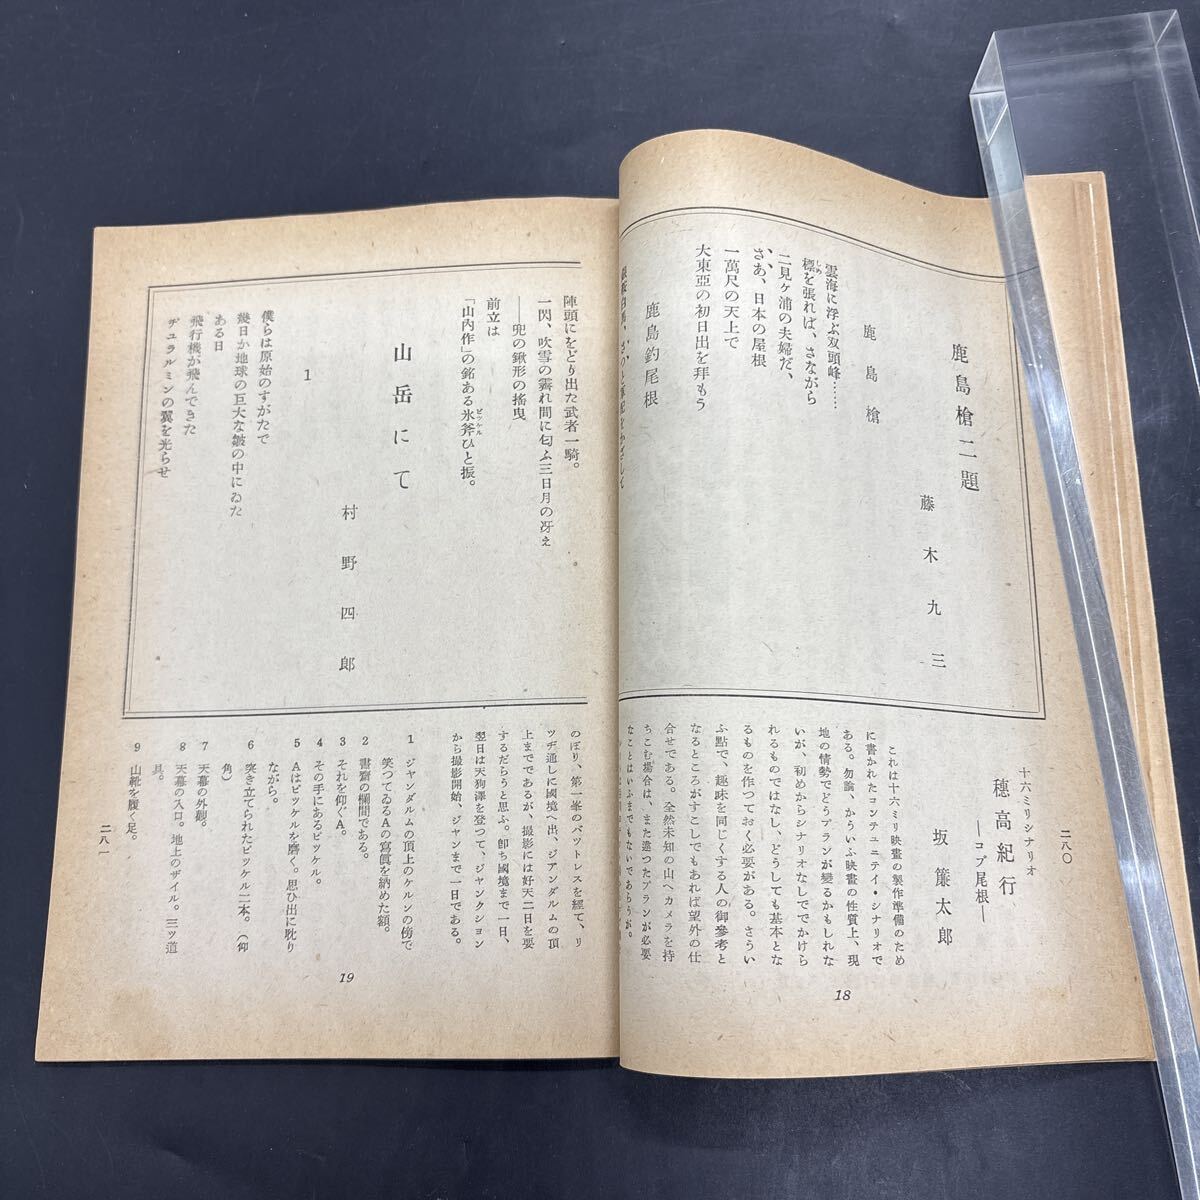 二八〇
鹿島槍二題
藤木九三
鹿島槍
雲海に浮ぶ双頭峰……
標を張れば、さながら
しめ
二見ヶ浦の夫婦だ、
さあ、日本の屋根
一萬尺の天上で
大東亞の初日出を拜もう
鹿島釣尾根
十六ミリシナリオ
穗高紀行
―コブ尾根―
坂簾太郎
これは十六ミリ映畫の製作準備のため
に書かれたコンテュニテイ・シナリオで
ある。勿論、かういふ映畫の性質上、現
地の情勢でどうプランが變るかもしれな
いが、初めからシナリオなしででかけら
れるものではなし、どうしても基本とな
るものを作つておく必要がある。さうい
ふ點で、趣味を同じくする人の御參考と
なるところがすこしでもあれば望外の仕
合せである。全然未知の山へカメラを持
ちこむ場合は、また違つたプランが必要
なことはいふまでもないであらうが。
18
陣頭にをどり出た武者一騎。
一閃、吹雪の霽れ間に匂ふ三日月の冴え
――兜の鍬形の搖曳
前立は
「山內作」の銘ある氷斧ひと振。
ピッケル
山岳にて
村野四郎
1
僕らは原始のすがたで
幾日か地球の巨大な皺の中にゐた
ある日
飛行機が飛んできた
ヂュラルミンの翼を光らせ
のぼり、第一峯のバツトレスを經て、リ
ツヂ通しに國境へ出、ジアンダルムの頂
上までであるが、撮影には好天二日を要
するだらうと思ふ。卽ち國境まで一日、
翌日は天狗澤を登つて、ジヤンクション
から撮影開始、ジヤンまで一日である。
1 ジヤンダルムの頂上のケルンの傍で
笑つてゐるAの寫眞を納めた額。
2 書齋の欄間である。
3 それを仰ぐA。
4 その手にあるピツケル。
5 Aはピツケルを磨く。思ひ出に耽り
ながら。
6 突き立てられたピツケル二本。（仰
角）
7 天幕の外觀。
8 天幕の入口。地上のザイル。三ツ道
具。
9 山靴を履く足。
19
二八一